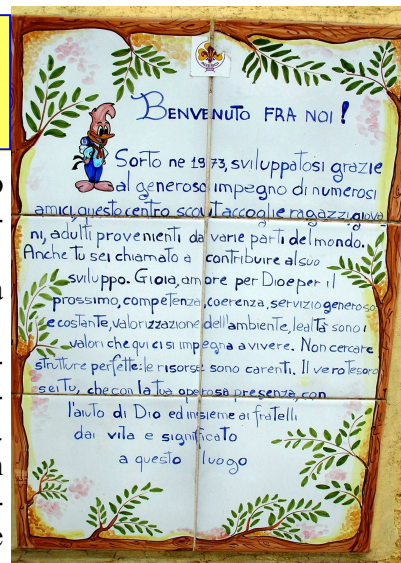 BENVENUTO FRA NOI!
Sorto ne 1973, sviluppatosi grazie
al generoso impegno di numerosi
amici, questo centro scout accoglie ragazzi, giova
ni, adulti provenienti da varie parti del mondo.
Anche Tu sei chiamato a contribuire al suo
sviluppo. Gioia, amore per Dio e per il
prossimo, competenza, coerenza, servizio generoso
e costante, valorizzazione dell'ambiente, lealtà sono i
valori che qui ci si impegna a vivere. Non cercare
strutture perfette: le risorse sono carenti. Il vero tesoro
sei Tu, che con la tua operosa presenza, con
l'aiuto di Dio ed insieme ai fratelli
dai vita e significato
a questo luogo